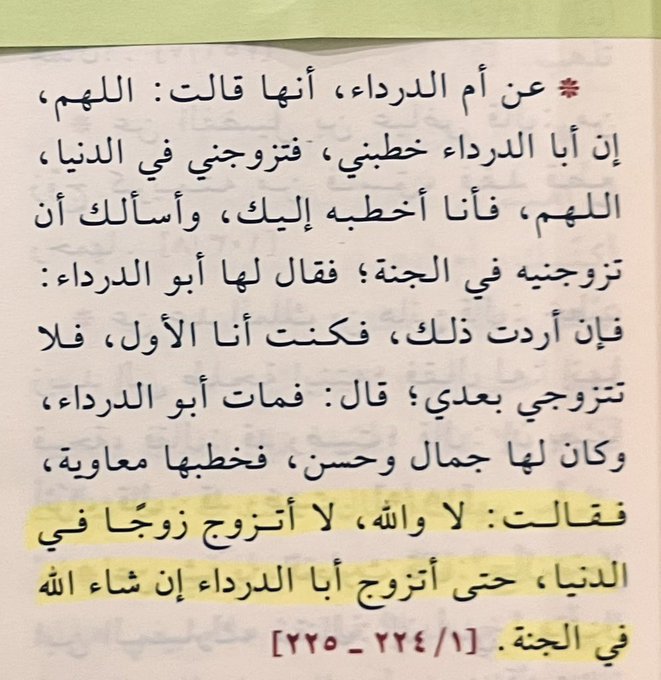 * عن أم الدرداء، أنها قالت: اللهم،
إن أبا الدرداء خطبني، فتزوجني في الدنيا،
اللهم، فأنا أخطبه إليك، وأسألك أن
تزوجنيه في الجنة؛ فقال لها أبو الدرداء:
فإن أردت ذلك، فكنت أنا الأول، فلا
تتزوجي بعدي؛ قال: فمات أبو الدرداء،
وكان لها جمال وحسن، فخطبها معاوية،
فقالت: لا والله، لا أتزوج زوجًا في
الدنيا، حتى أتزوج أبا الدرداء إن شاء الله
في الجنة. [١/ ٢٢٤ ـ ٢٢٥]